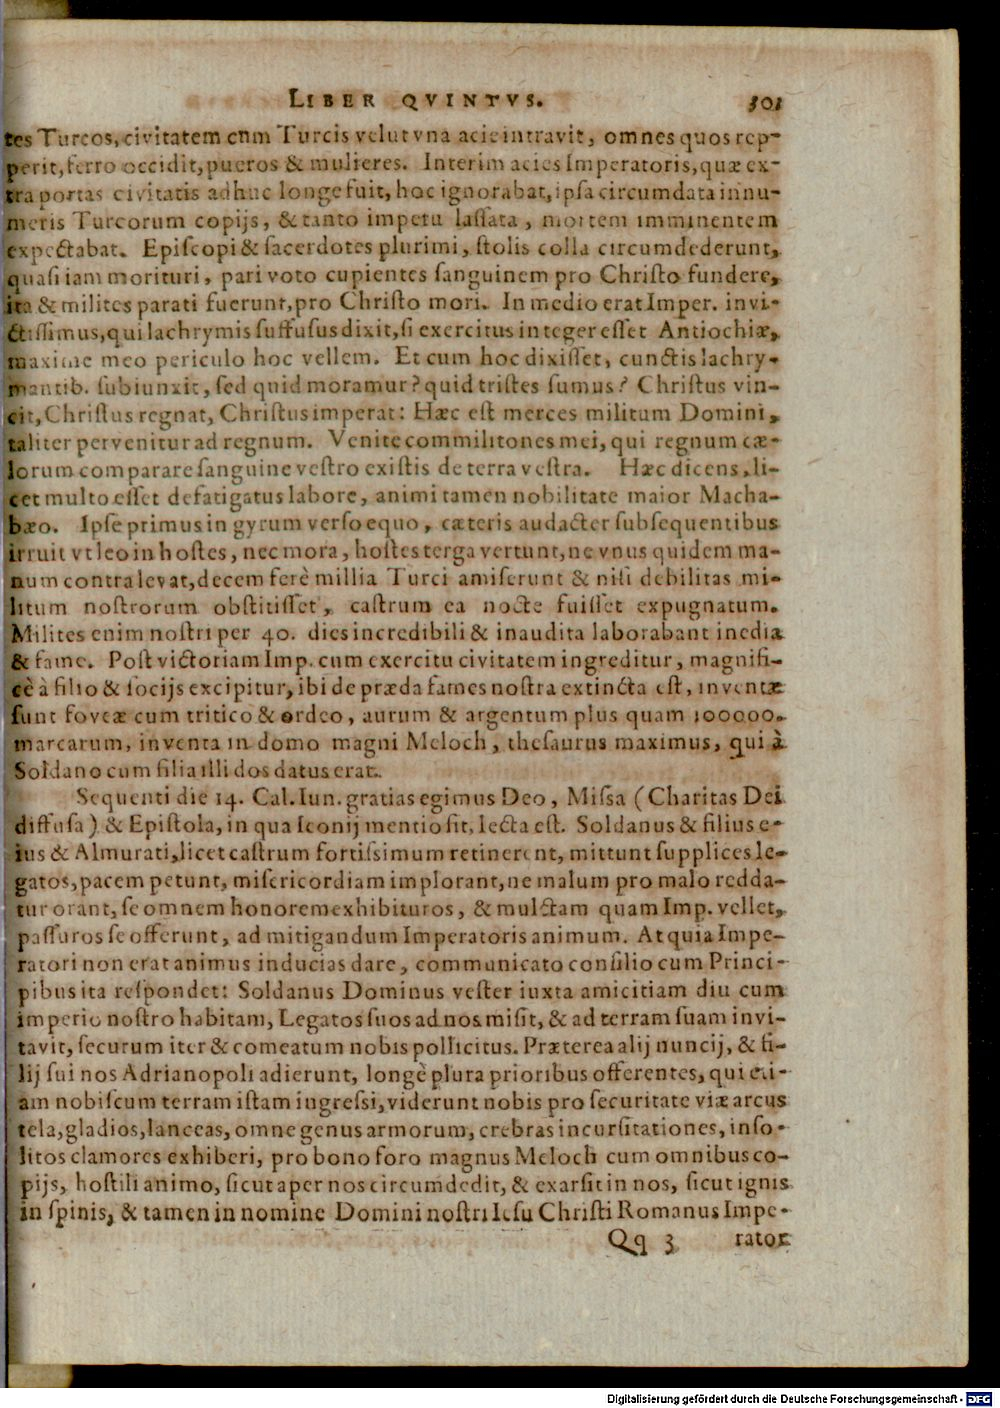 LIBER QVINTVS. 301
tes Turcos, civitatem cum Turcis velut vna acie intravit, omnes quos rep-
perit, ferro occidit, pueros & mulieres. Interim acies Imperatoris, quæ ex-
tra portas civitatis adhuc longe fuit, hoc ignorabat, ipſa circumdata innu-
meris Turcorum copijs, & tanto impetu laſſata, mortem imminentem
expectabat. Epiſcopi & ſacerdotes plurimi, ſtolis colla circumdederunt,
quaſi iam morituri, pari voto cupientes ſanguinem pro Chriſto fundere,
ita & milites parati fuerunt, pro Chriſto mori. In medio erat Imper. invi-
ctiſſimus, qui lachrymis ſuffuſus dixit, ſi exercitus integer eſſet Antiochiæ,
maxime meo periculo hoc vellem. Et cum hoc dixiſſet, cunctis lachry-
mantib. ſubiunxit, ſed quid moramur? quid triſtes ſumus? Chriſtus vin-
cit, Chriſtus regnat, Chriſtus imperat: Hæc eſt merces militum Domini,
taliter pervenitur ad regnum. Venite commilitones mei, qui regnum cæ-
lorum comparare ſanguine veſtro exiſtis de terra veſtra. Hæc dicens, li-
cet multo eſſet defatigatus labore, animi tamen nobilitate maior Macha-
bæo. Ipſe primus in gyrum verſo equo, cæteris audacter ſubſequentibus
irruit vt leo in hoſtes, nec mora, hoſtes terga vertunt, ne vnus quidem ma-
num contra levat, decem ferè millia Turci amiſerunt & niſi debilitas mi-
litum noſtrorum obſtitiſſet, caſtrum ea nocte fuiſſet expugnatum.
Milites enim noſtri per 40. dies incredibili & inaudita laborabant inedia
& fame. Poſt victoriam Imp. cum exercitu civitatem ingreditur, magnifi-
cè à filio & ſocijs excipitur, ibi de præda fames noſtra extincta eſt, inventæ
ſunt foveæ cum tritico & ordeo, aurum & argentum plus quam 100000.
marcarum, inventa in domo magni Meloch, theſaurus maximus, qui à
Soldano cum filia illi dos datus erat.
Sequenti die 14. Cal. Iun. gratias egimus Deo, Miſſa (Charitas Dei
diffuſa) & Epiſtola, in qua Iconij mentio ſit, lecta eſt. Soldanus & filius e-
ius & Almurati, licet caſtrum fortiſſimum retinerent, mittunt ſupplices le-
gatos, pacem petunt, miſericordiam implorant, ne malum pro malo redda-
tur orant, ſe omnem honorem exhibituros, & mulctam quam Imp. vellet,
paſſuros ſe offerunt, ad mitigandum Imperatoris animum. At quia Impe-
ratori non erat animus inducias dare, communicato conſilio cum Princi-
pibus ita reſpondet: Soldanus Dominus veſter iuxta amicitiam diu cum
imperio noſtro habitam, Legatos ſuos ad nos miſit, & ad terram ſuam invi-
tavit, ſecurum iter & comeatum nobis pollicitus. Præterea alij nuncij, & fi-
lij ſui nos Adrianopoli adierunt, longè plura prioribus offerentes, qui eti-
am nobiſcum terram iſtam ingreſſi, viderunt nobis pro ſecuritate viæ arcus
tela, gladios, lanceas, omne genus armorum, crebras incurſitationes, inſo-
litos clamores exhiberi, pro bono foro magnus Meloch cum omnibus co-
pijs, hoſtili animo, ſicut aper nos circumdedit, & exarſit in nos, ſicut ignis
in ſpinis, & tamen in nomine Domini noſtri Ieſu Chriſti Romanus Impe-
Qq 3 rator
Digitalisierung gefördert durch die Deutsche Forschungsgemeinschaft - DFG